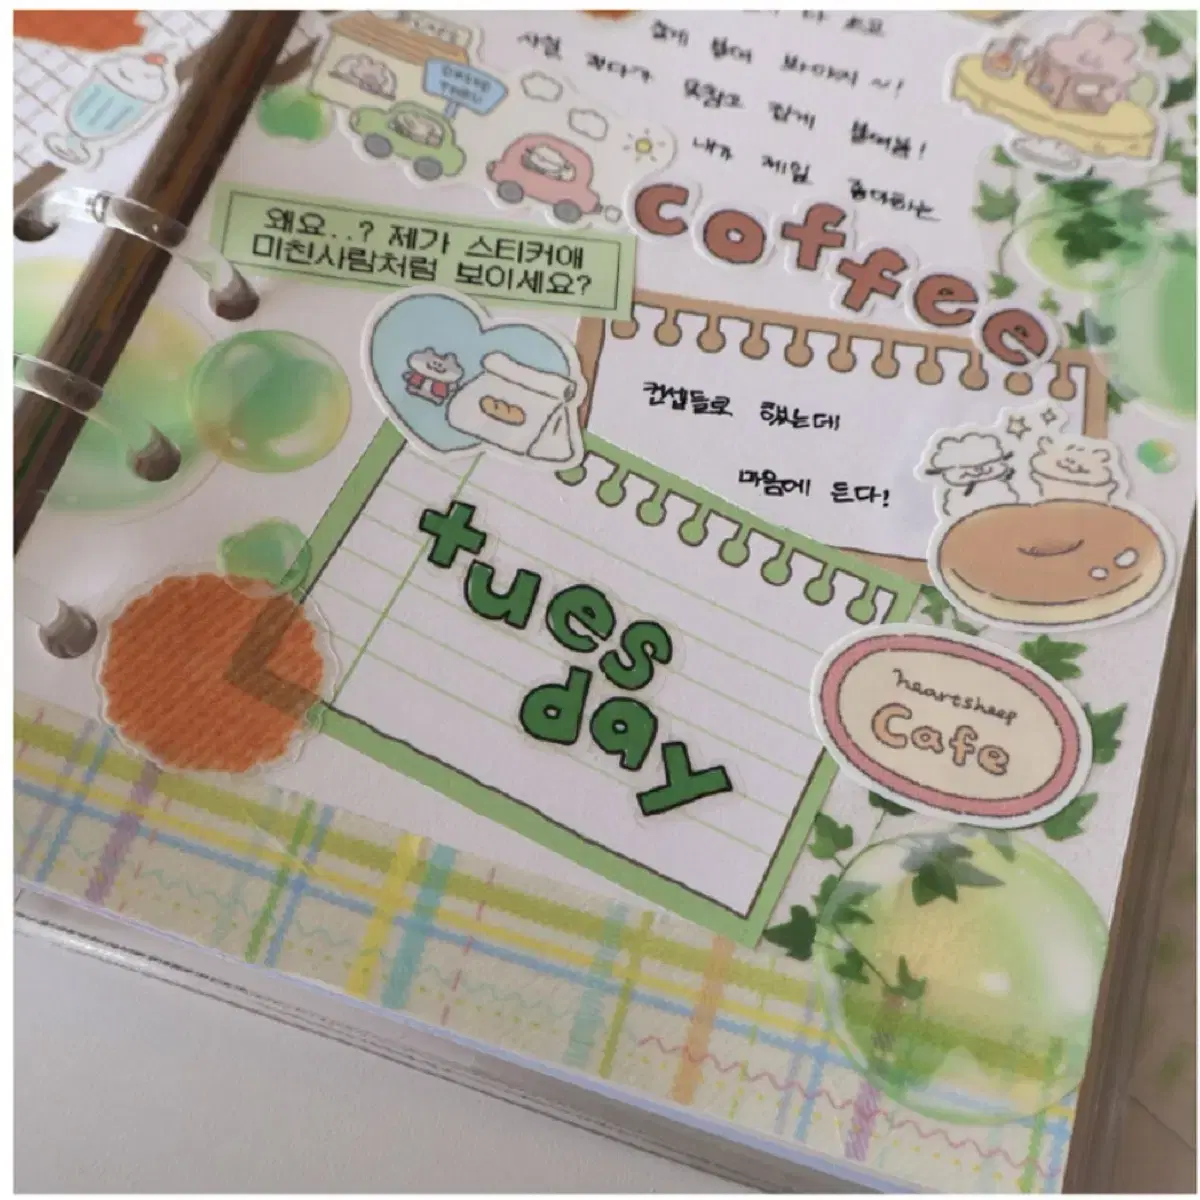 CAFE
DRIVE
THRU
봐야지~!
사실 적다가 못참고
내가 제일 좋아하는
coffee
왜요..? 제가 스티커에
미친사람처럼 보이세요?
컨셉들로 했는데
마음에 든다!
tues
day
heartsheep
Cafe